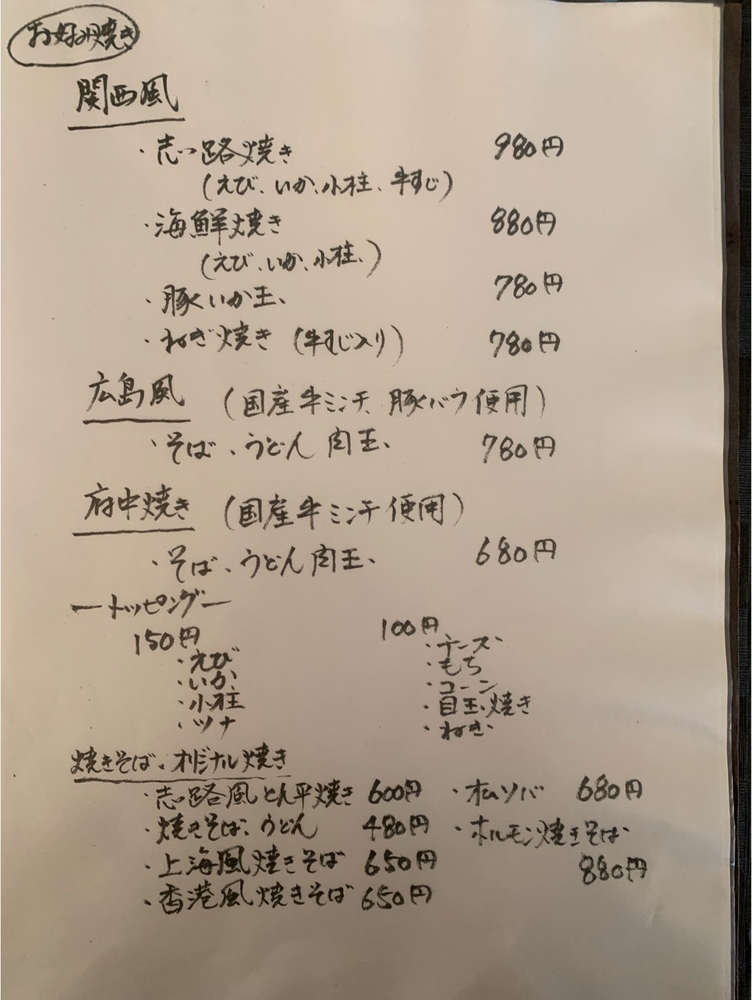 お好み焼き
関西風
・志っ路焼き 980円
(えび、いか、小柱、牛すじ)
・海鮮焼き 880円
(えび、いか、小柱、)
・豚いか玉、 780円
・ねぎ焼き (牛すじ入り) 780円
広島風 (国産牛ミンチ、豚バラ使用)
・そば、うどん肉玉、 780円
府中焼き (国産牛ミンチ使用)
・そば、うどん肉玉、 680円
ートッピングー
150円 100円
・えび ・チーズ
・いか ・もち
・小柱 ・コーン
・ツナ ・目玉焼き
・ねぎ
焼きそば、オリジナル焼き
・志っ路風とん平焼き 600円 ・オムソバ 680円
・焼きそば、うどん 480円 ・ホルモン焼きそば
・上海風焼きそば 650円 880円
・香港風焼きそば 650円